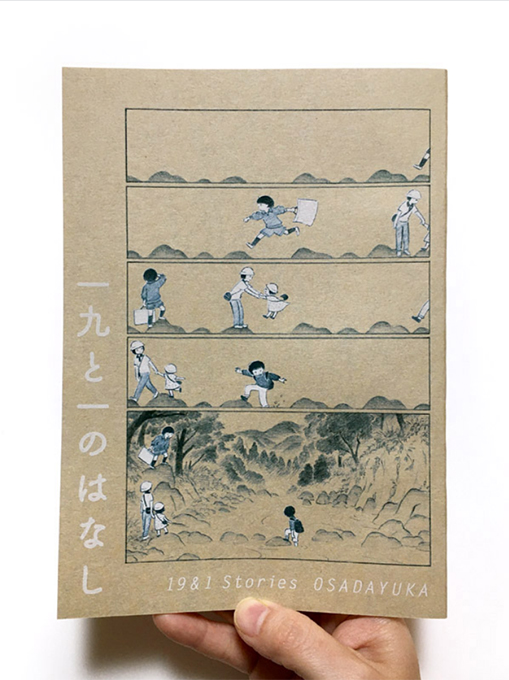 一九と一のはなし
19&1 Stories OSADAYUKA